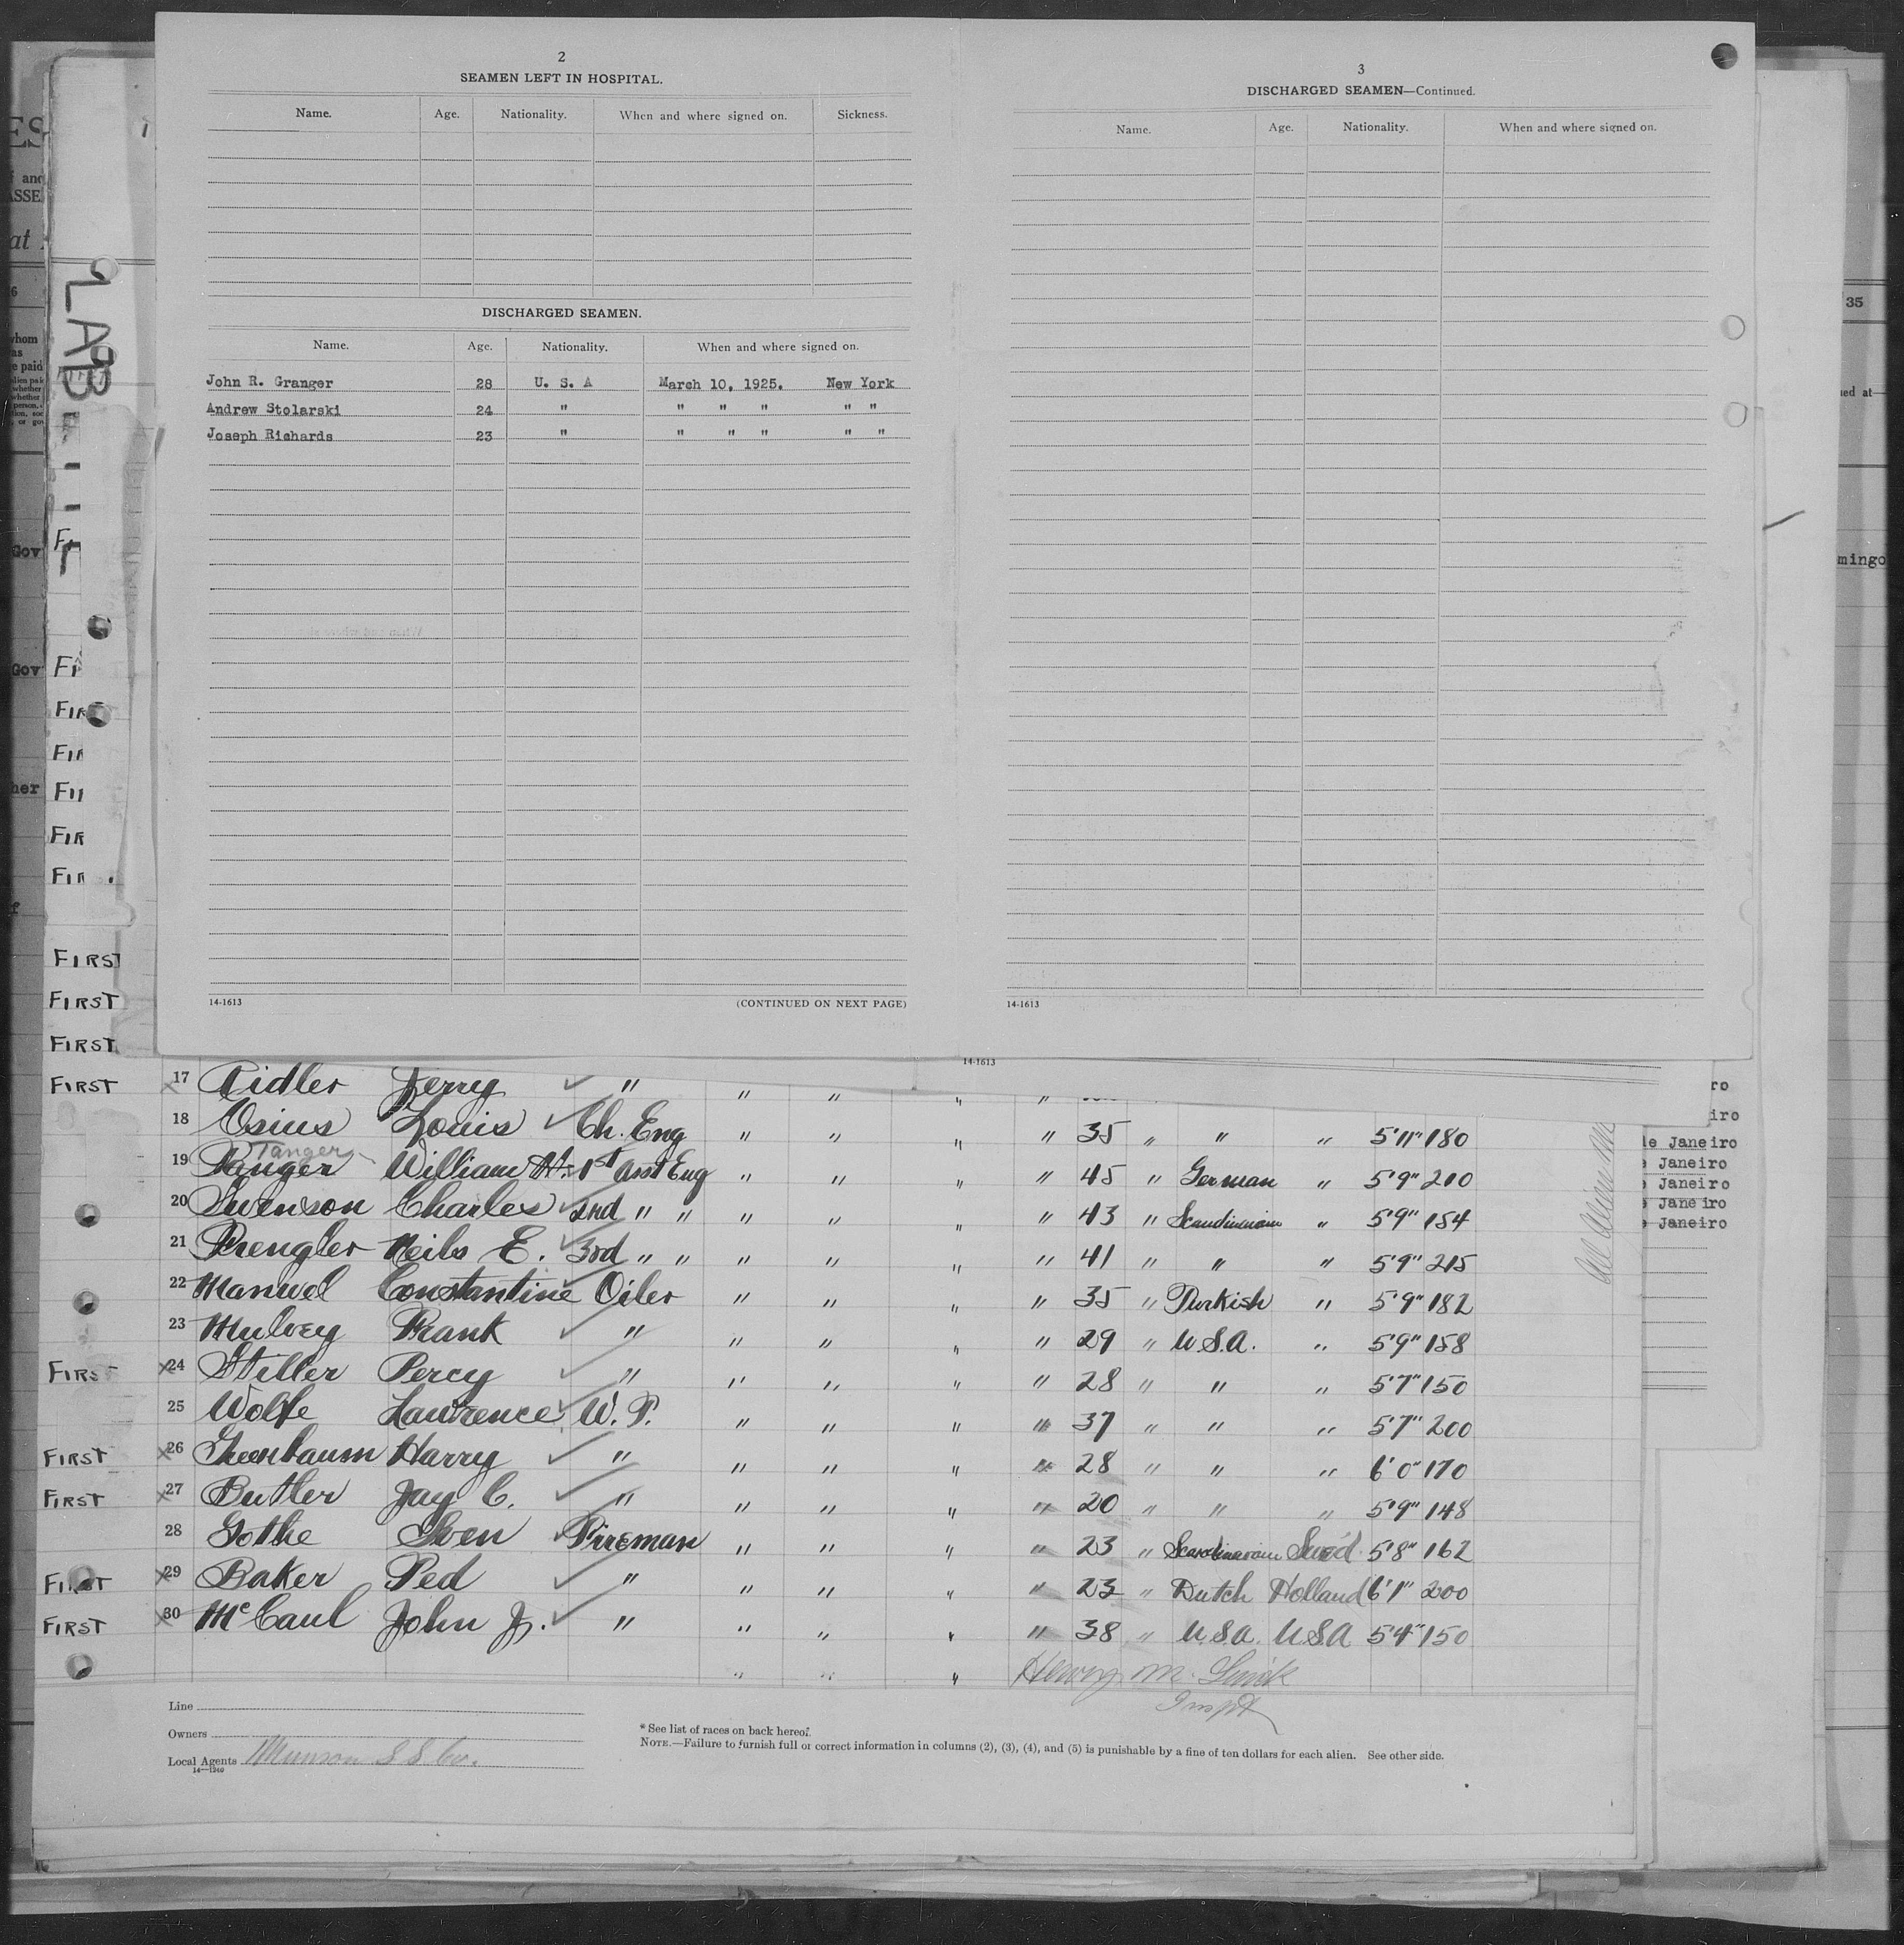 2
SEAMEN LEFT IN HOSPITAL.
Name. Age. Nationality. When and where signed on. Sickness.
DISCHARGED SEAMEN.
Name. Age. Nationality. When and where signed on.
John R. Granger 28 U. S. A March 10, 1925. New York
Andrew Stolarski 24 " " " " " "
Joseph Richards 23 " " " " " "
14-1613 (CONTINUED ON NEXT PAGE)
3
DISCHARGED SEAMEN—Continued.
Name. Age. Nationality. When and where signed on.
14-1613
14-1613
35
mingo
Gov
Gov
LAB
FIRST
FIRST
FIRST
FIRST 17 Ridler Jerry " " " " "
18 Osius Louis Ch. Eng " " " " 35 " " " 5'11" 180
Tanger
19 Tanger William H. 1st Asst Eng " " " " 45 " German " 5'9" 210
20 Swenson Charles 2nd " " " " " " 43 " Scandinavian " 5'9" 184
21 Prengler Neils E. 3rd " " " " " " 41 " " " 5'9" 215
22 Manuel Constantine Oiler " " " " 35 " Turkish " 5'9" 182
23 Mulvey Frank " " " " " 29 " U.S.A. " 5'9" 158
FIRST x24 Stiller Percy " " " " " 28 " " " 5'7" 150
25 Wolfe Lawrence W. T. " " " " 37 " " " 5'7" 200
FIRST x26 Greenbaum Harry " " " " " 28 " " " 6'0" 170
FIRST x27 Butler Jay C. " " " " " 20 " " " 5'9" 148
28 Gothe Sven Fireman " " " " 23 " Scandinavian Swed. 5'8" 162
FIRST x29 Baker Ted " " " " " 23 " Dutch Holland 6'1" 200
FIRST x30 McCaul John J. " " " " " 38 " U.S.A. U.S.A 5'4" 150
" " " Henry M.
Inspt
de Janeiro
Janeiro
Janeiro
Janeiro
Janeiro
Line
Owners
Local Agents Munson S S Co.
14—1240
* See list of races on back hereof.
NOTE.—Failure to furnish full or correct information in columns (2), (3), (4), and (5) is punishable by a fine of ten dollars for each alien. See other side.